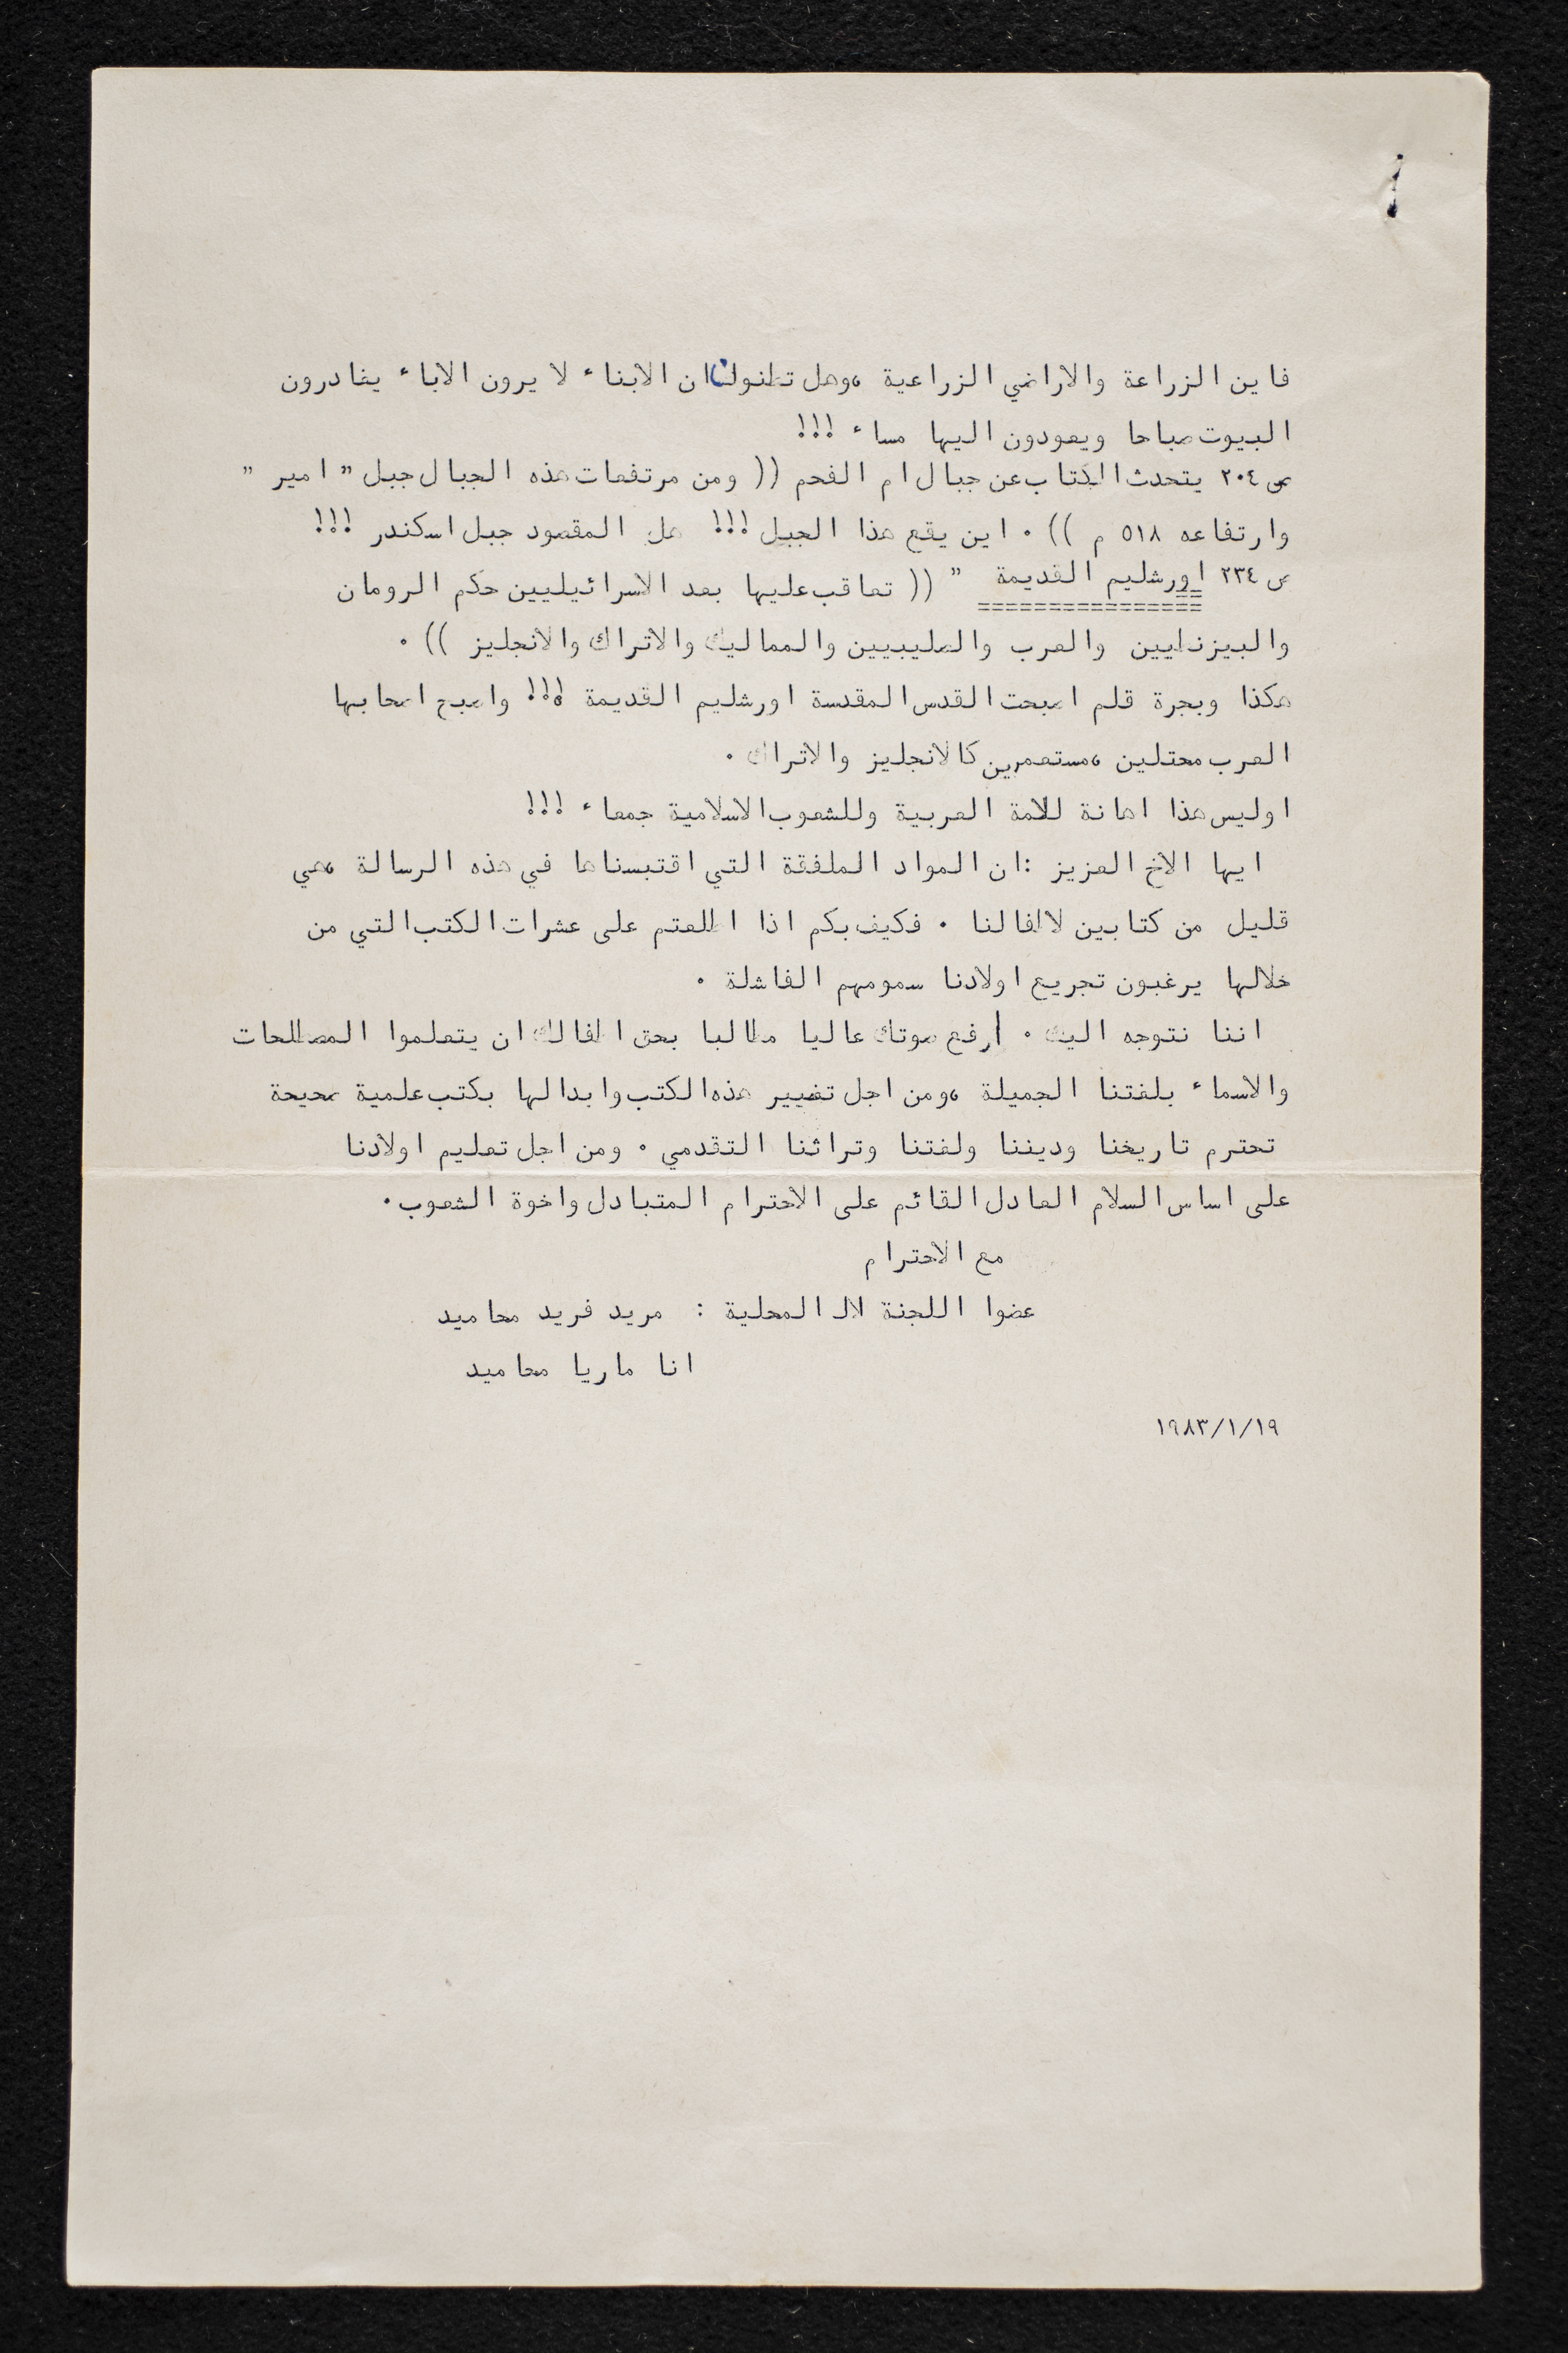 فاين الزراعة والاراضي الزراعية ،وهل تظنون ان الابناء لا يرون الاباء يغادرون
البيوت صباحا ويعودون اليها مساء !!!
ص ٢٠٤ يتحدث الكتاب عن جبال ام الفحم (( ومن مرتفعات هذه الجبال جبل " امير "
وارتفاعه ٥١٨ م )) ٠ اين يقع هذا الجبل !!! هل المقصود جبل اسكندر !!!
ص ٢٣٤ اورشليم القديمة " (( تعاقب عليها بعد الاسرائيليين حكم الرومان
والبيزنطيين والعرب والصليبيين والمماليك والاتراك والانجليز )) ٠
هكذا وبجرة قلم اصبحت القدس المقدسة اورشليم القديمة !!! واصبح اصحابها
العرب محتلين ،مستعمرين كالانجليز والاتراك ٠
اوليس هذا اهانة للامة العربية وللشعوب الاسلامية جمعاء !!!
ايها الاخ العزيز :ان المواد الملفقة التي اقتبسناها في هذه الرسالة ،هي
قليل من كتابين لاطفالنا ٠ فكيف بكم اذا اطلعتم على عشرات الكتب التي من
خلالها يرغبون تجريع اولادنا سمومهم الفاشلة ٠
اننا نتوجه اليك ٠ ارفع صوتك عاليا مطالبا بحق اطفالك ان يتعلموا المصطلحات
والاسماء بلغتنا الجميلة ،ومن اجل تغيير هذه الكتب وابدالها بكتب علمية صحيحة
تحترم تاريخنا وديننا ولغتنا وتراثنا التقدمي ٠ ومن اجل تعليم اولادنا
على اساس السلام العادل القائم على الاحترام المتبادل واخوة الشعوب ٠
مع الاحترام
عضوا اللجنة المحلية : مريد فريد محاميد
انا ماريا محاميد
١٩٨٣/١/١٩